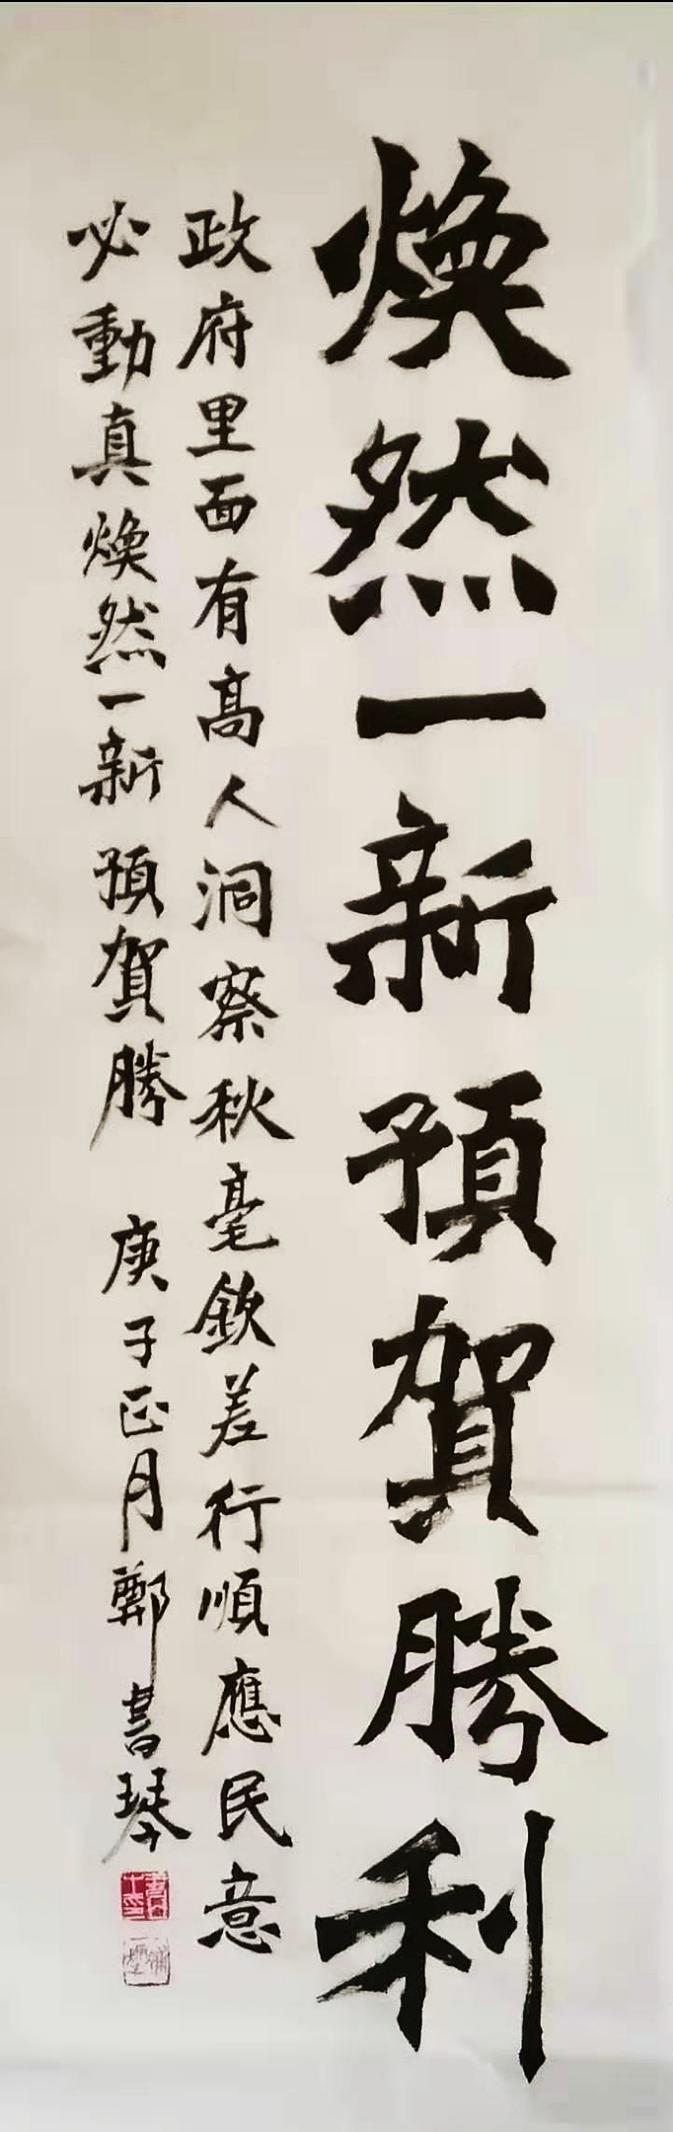 煥然一新預賀勝利
政府里面有高人洞察秋毫欽差行順應民意
必動真煥然一新預賀勝 庚子正月鄭書琴